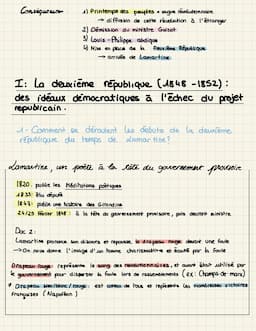 Conséquences
1) Printemps des peuples = vague révolutionnaire
→ diffusion de cette révolution à l'étranger
2) Démission du ministre Guizot
3) Louis-Philippe abdique
4) Mise en place de la Deuxième République
→ arrivée de Lamartine
I: La deuxième république (1848-1852):
des idéaux démocratiques à l'échec du projet
républicain.
1- Comment se déroulent les débuts de la deuxième
république du temps de Lamartine?
Lamartine, un poète à la tête du gouvernement provisoire
1820: publie les Méditations poétiques
1833: élu député
1847: publie une histoire des Girondins
24/25 février 1848: à la tête du gouvernement provisoire, puis devient ministre.
Doc 2:
Lamartine prononce son discours et repousse le drapeau rouge devant une foule
→ On nous donne l'image d'un homme charismatique et écouté par la foule
Drapeau rouge: représente le sang des révolutionnaires, et avait était utilisé par
le gouvernement pour disperser la foule lors de rassemblements (ex: Champs de mars)
Drapeau tricolore / rouge: est connu de tous et représente les nombreuses victoires
françaises (Napoléon)